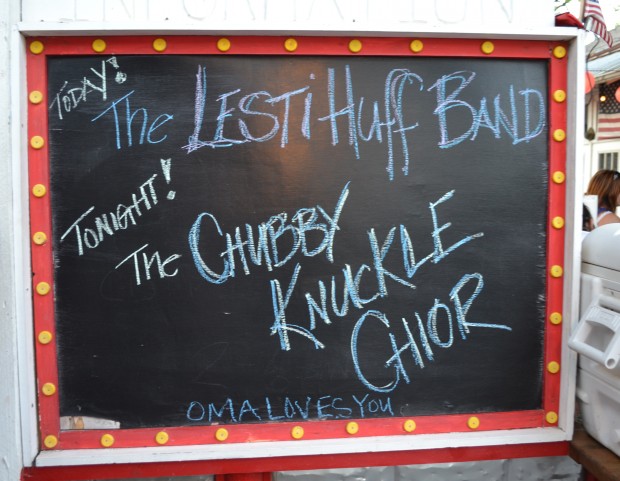 INFORMATION
TODAY!
The LESTi Huff BAND
TONIGHT!
The CHUBBY
KNUCKLE
CHIOR
OMA LOVES YOU